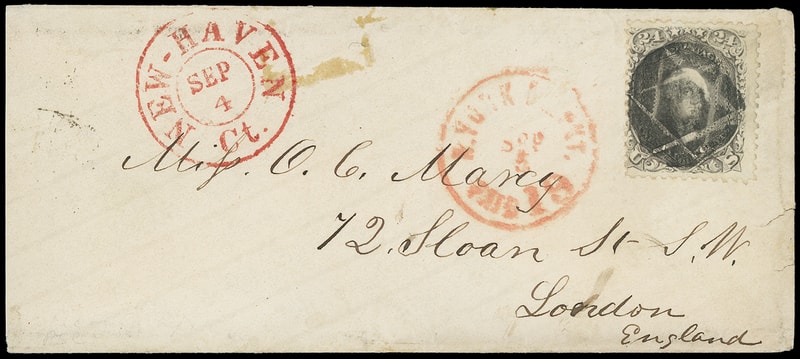 NEW-HAVEN Ct.
SEP
4
YORK
24 24
U S
Miss O. C. Marcy
72. Sloan St S.W.
London
England